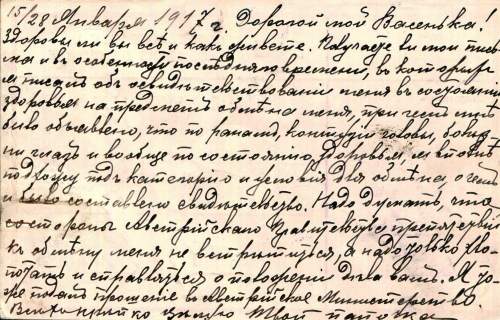 15/28 Января 1917 г. Дорогой мой Васенька!
Здоровы ли вы всѣ и какъ живете. Получаете ли мои пись
ма и въ особенности послѣдняго времени, въ которых
я писалъ объ освидѣтельствованіи меня въ состоянии
здоровья на предметъ обмѣна меня, при чемъ мнѣ
было объявлено, что по ранамъ, контузіи головы, болѣз
ни глазъ и вообще по состоянію здоровья, я вполнѣ
подхожу подъ категорію и условія для обмѣна, о чемъ
и было составлено свидѣтельство. Надо думать, что
со стороны Австрійскаго Правительства препятствій
къ обмѣну меня не встрѣтиться, а надо только хло
потать и справляться о положеніи дѣла вамъ. Я то
же подалъ прошеніе въ Австрійское Министерство.
цѣлую Твой папочка